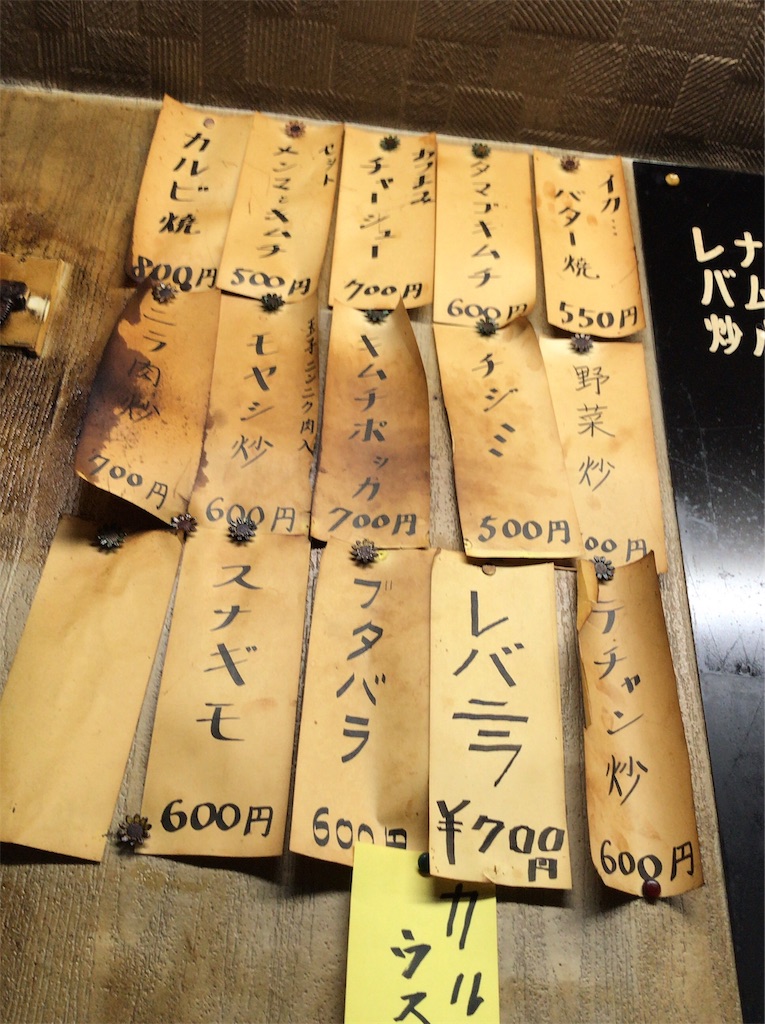 ナム
レバ炒
イカ
バター焼
550円
タマゴキムチ
600円
チャーシュー
700円
セット
メンマとキムチ
500円
カルビ焼
800円
野菜炒
00円
チジミ
500円
キムチポッカ
700円
玉子ニンニク肉入
モヤシ炒
600円
ニラ肉炒
700円
テチャン炒
600円
レバニラ
¥700円
ブタバラ
600円
スナギモ
600円
カル
ウス